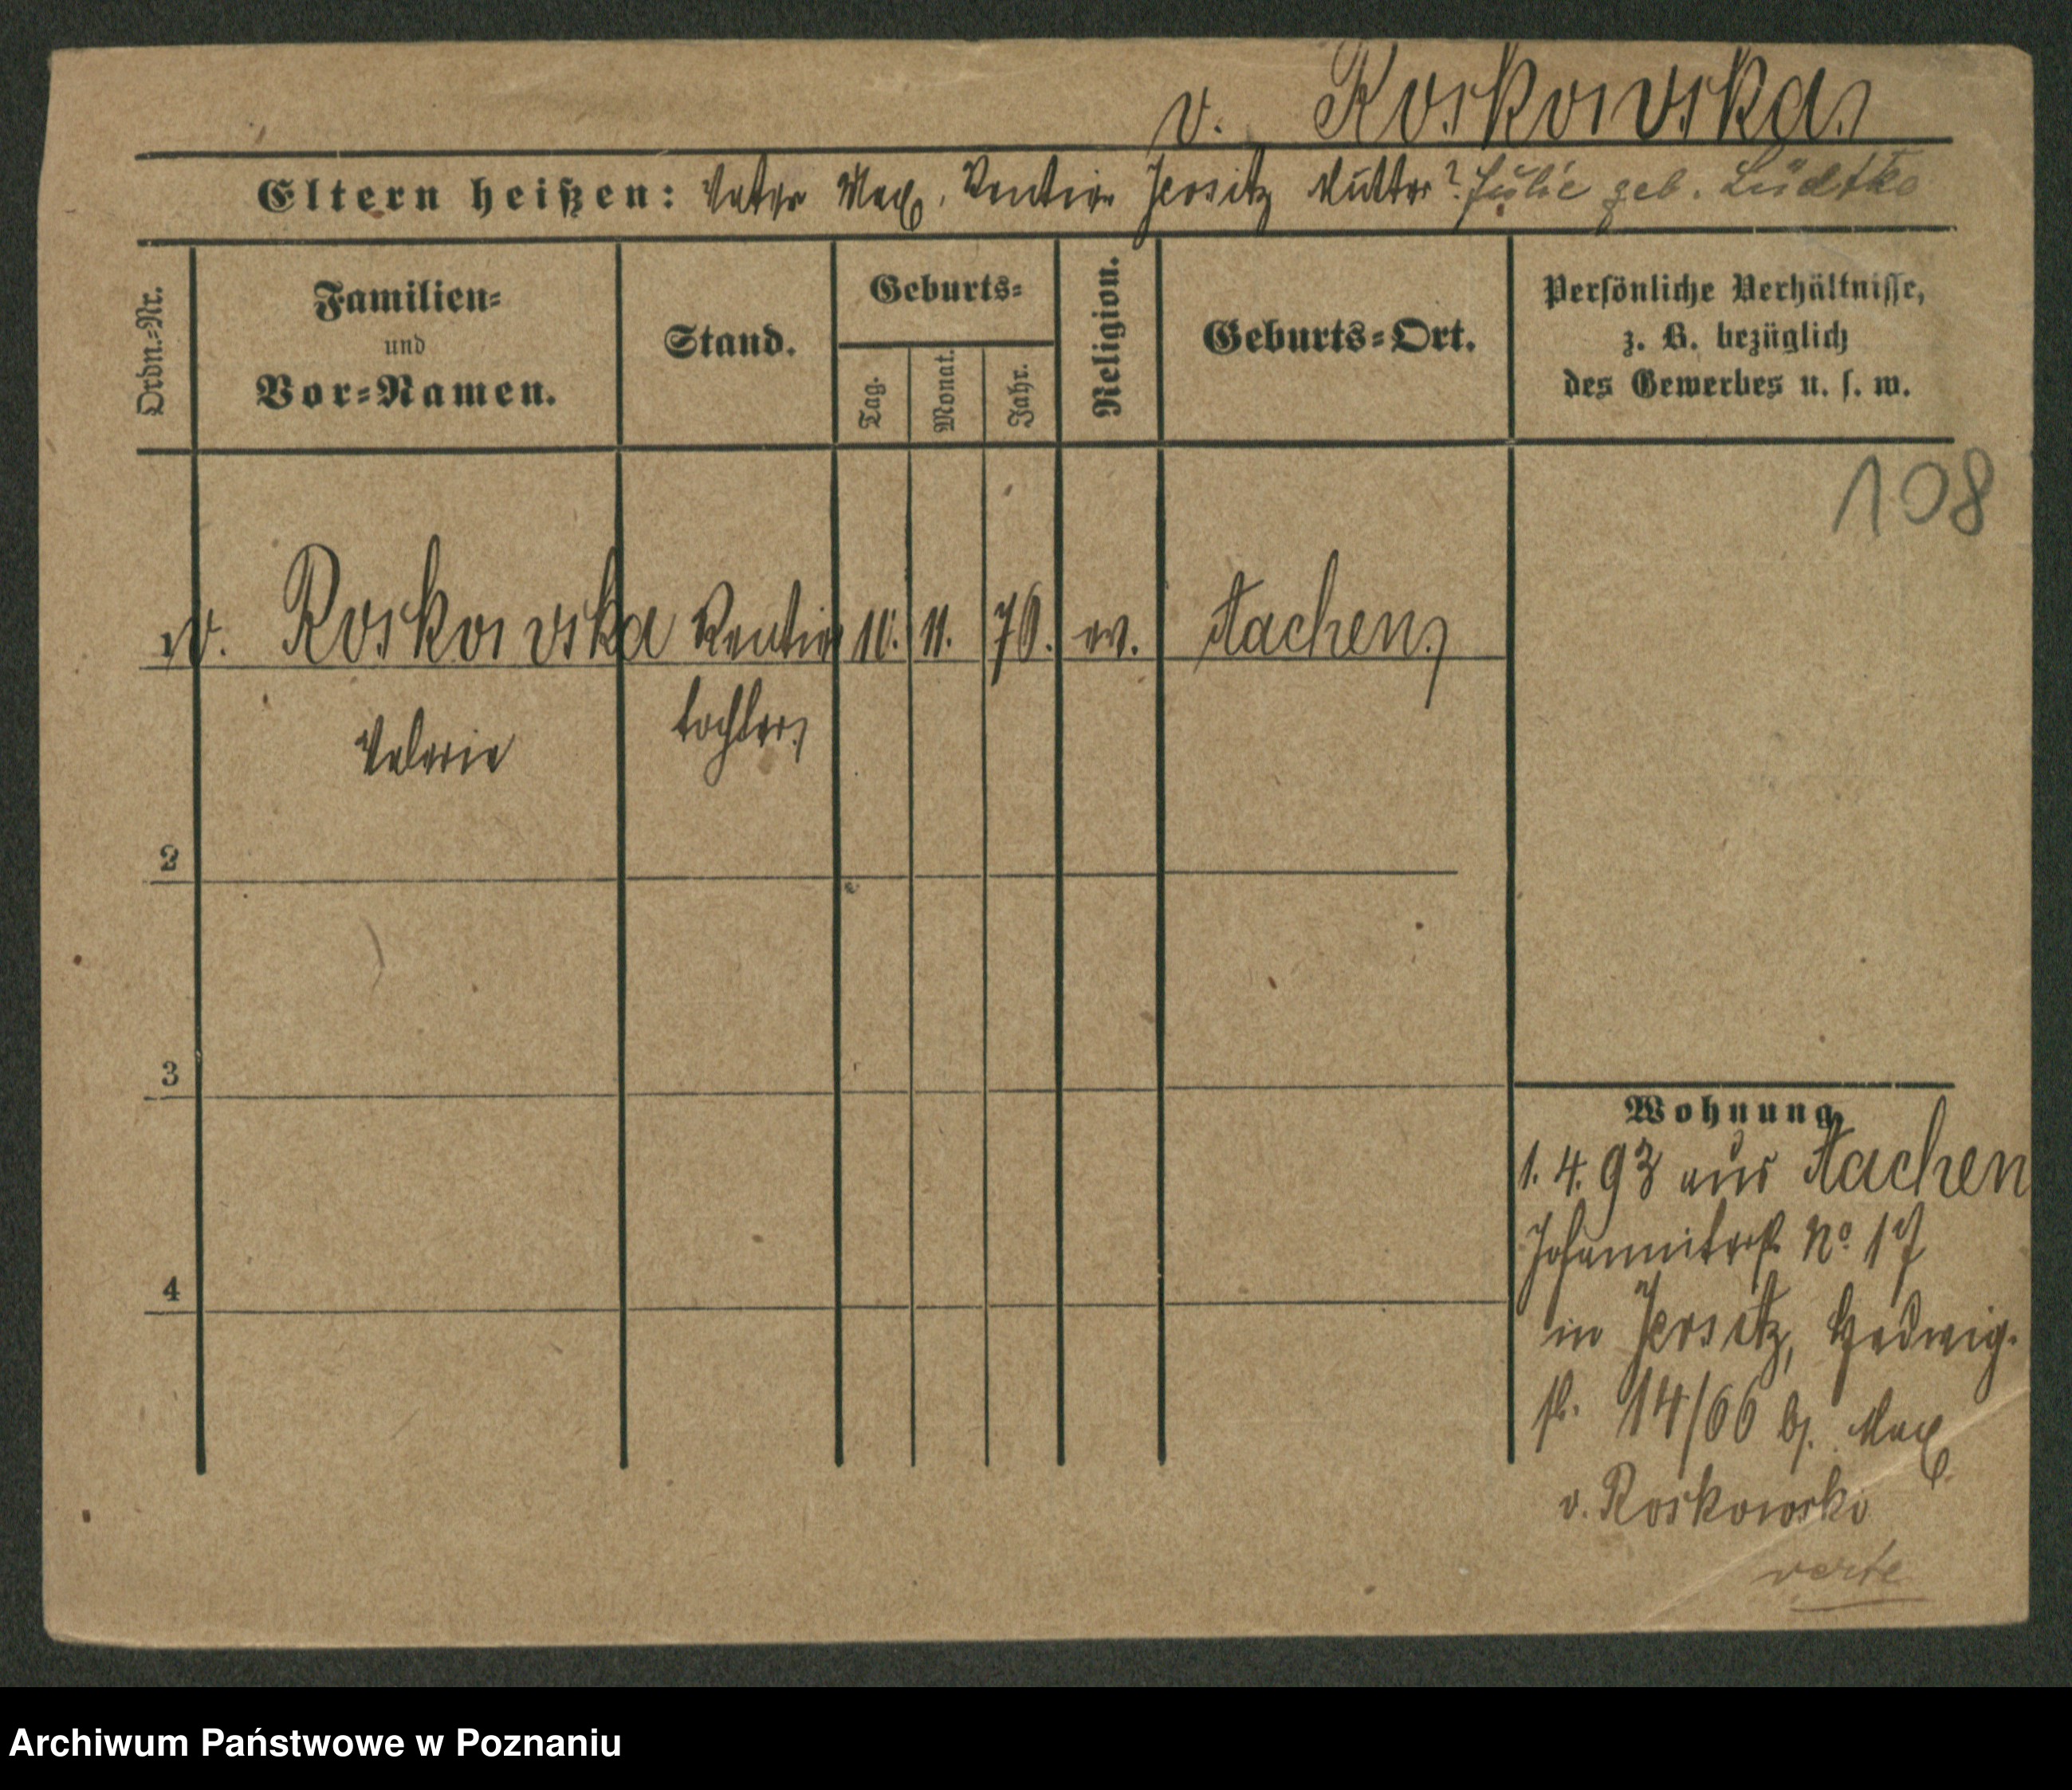 v. Roskowska
Eltern heißen: Vater Max, Rentier Jersitz Mutter? Julie geb. Lüdtke
Ordn.-Nr.
Familien-
und
Vor-Namen.
Stand.
Geburts-
Tag.
Monat.
Jahr.
Religion.
Geburts-Ort.
Persönliche Verhältnisse,
z. B. bezüglich
des Gewerbes u. s. w.
108
1 v. Roskowska Rentier 11. 70. ev. Aachen
Valerie tochter
2
3
4
Wohnung.
1. 4. 93 aus Aachen
Johanniterst. No 17
in Jersitz, Hedwig-
st. 14/66 bj. Max
v. Roskowski
verte
Archiwum Państwowe w Poznaniu